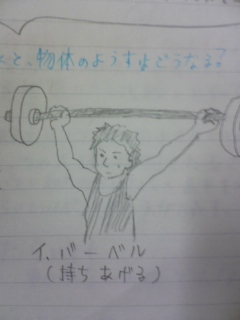 と、物体のようすはどうなる?
イ. バーベル
(持ちあげる)